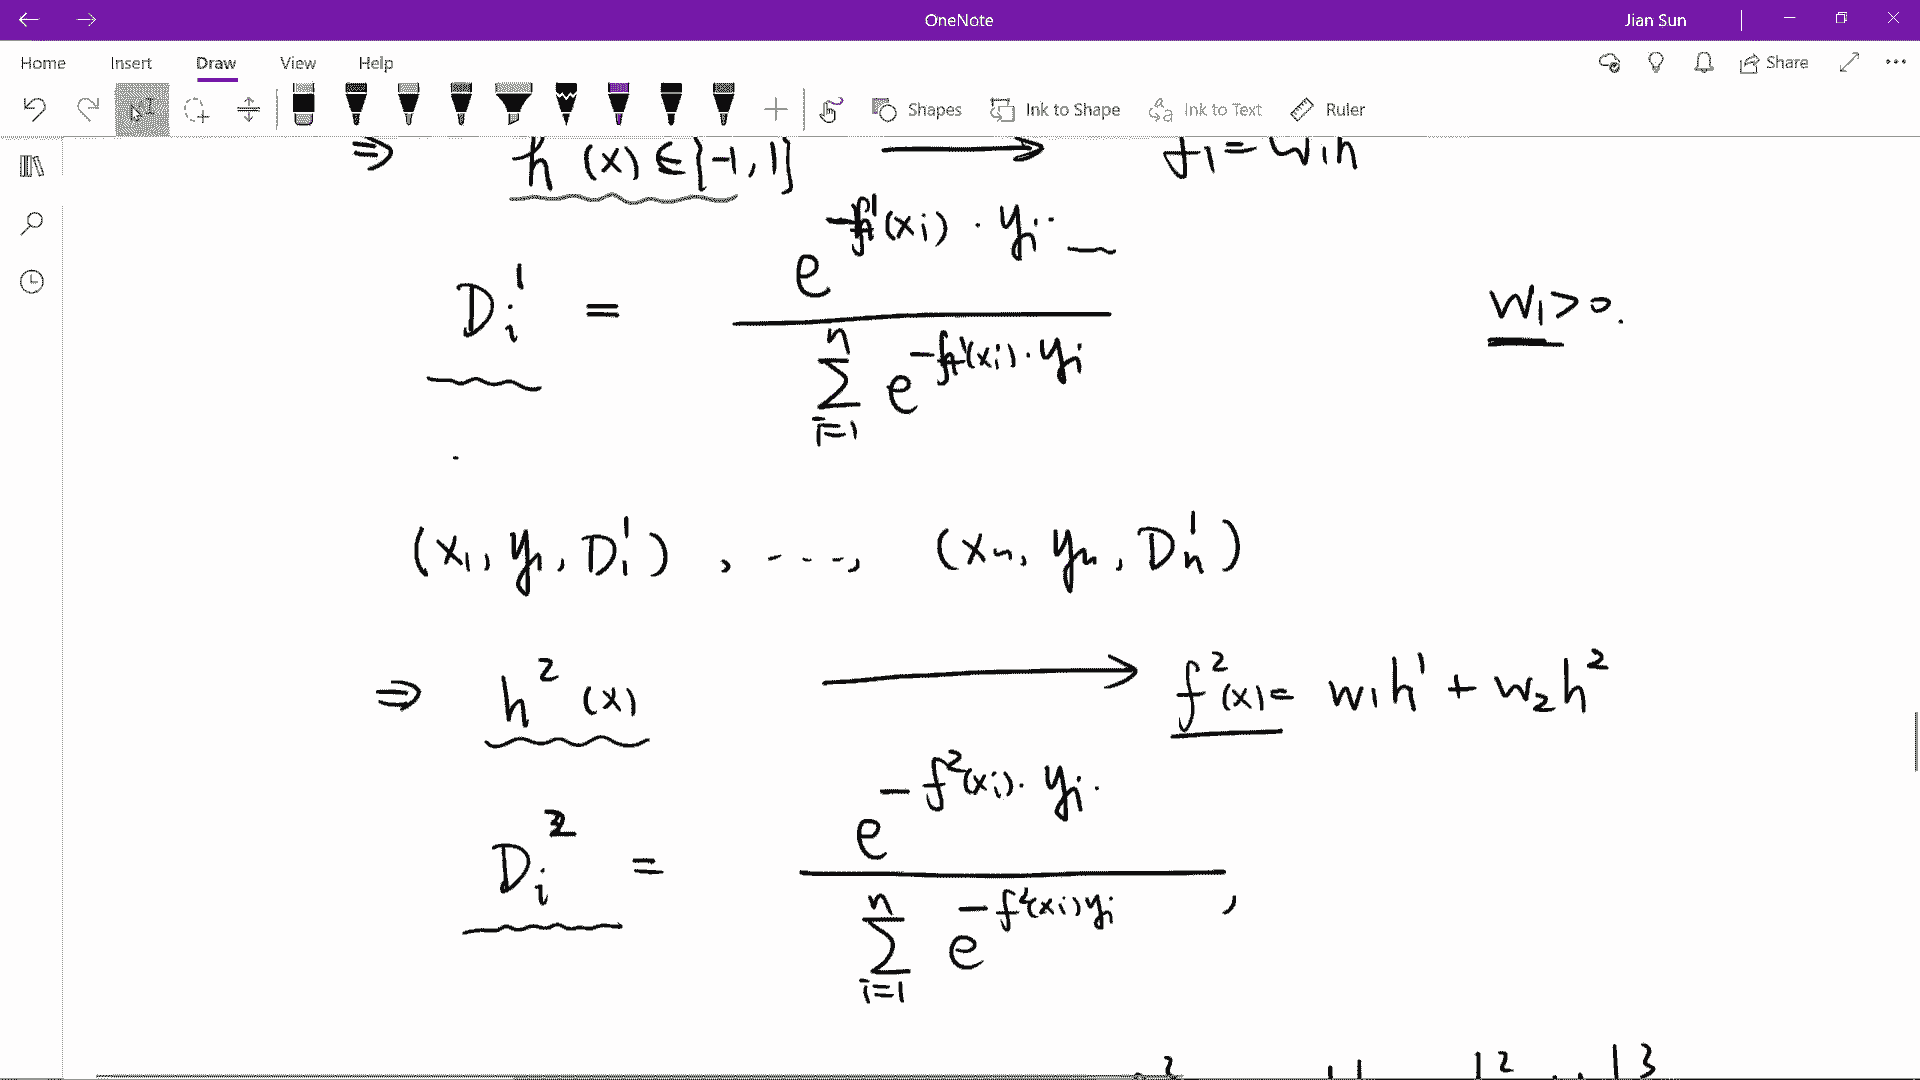 OneNote
Jian Sun
Home Insert Draw View Help
Share
Shapes Ink to Shape Ink to Text Ruler
⇒ h(x) ∈ [-1, 1] ⟶ f_1 = w_1h
D_i^1 = e^{-f^1(x_i) · y_i} / Σ_{i=1}^n e^{-f^1(x_i) · y_i}
w_1 > 0.
(x_1, y_1, D_1^1), ----, (x_n, y_n, D_n^1)
⇒ h^2(x) ⟶ f^2(x) = w_1h^1 + w_2h^2
D_i^2 = e^{-f^2(x_i) · y_i} / Σ_{i=1}^n e^{-f^2(x_i)y_i},